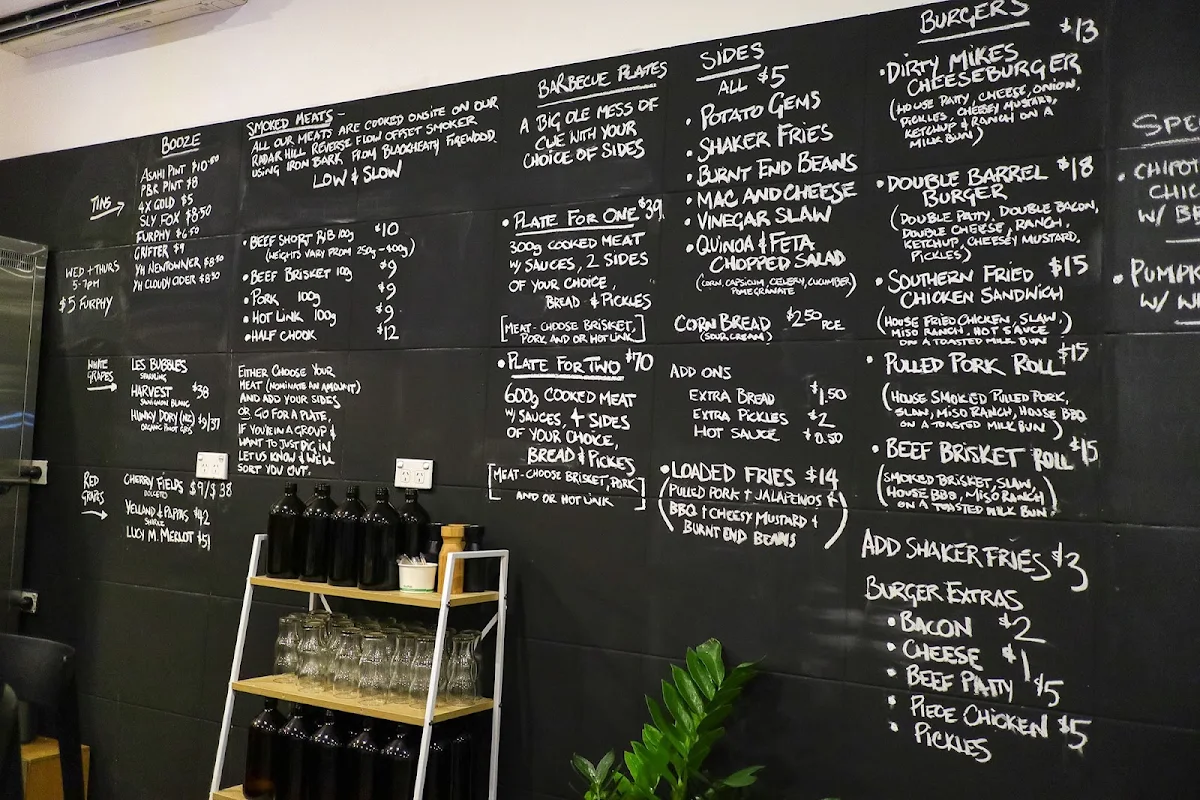 BOOZE
TINS
ASAHI PINT $10.00
PBR PINT $8
4X GOLD $5
SLY FOX $8.50
FURPHY $6.50
GRIFTER $9
YH NEWTOWNER $8.50
YH CLOUDY CIDER $8.50
WED + THURS
5-7PM
$5 FURPHY
WHITE
GRAPES
LES BUBBLES
SPARKLING
HARVEST $38
SAUVIGNON BLANC
HUNKY DORY (NZ) $9/37
ORGANIC PINOT GRIS
RED
GRAPES
CHERRY FIELDS $9/$38
DOLCETTO
YELLAND & PAPPS $42
SHIRAZ
LUCY M. MERLOT $51
SMOKED MEATS -
ALL OUR MEATS ARE COOKED ONSITE ON OUR
RADAR HILL REVERSE FLOW OFFSET SMOKER
USING IRON BARK, FROM BLACKHEATH FIREWOOD.
LOW & SLOW
• BEEF SHORT RIB 100g $10
(WEIGHTS VARY FROM 250g-400g)
• BEEF BRISKET 100g $9
• PORK 100g $9
• HOT LINK 100g $9
• HALF CHOOK $12
EITHER CHOOSE YOUR
MEAT (NOMINATE AN AMOUNT)
AND ADD YOUR SIDES
OR GO FOR A PLATE,
IF YOU'RE IN A GROUP &
WANT TO JUST DIG IN
LET US KNOW & WE'LL
SORT YOU OUT.
BARBECUE PLATES
A BIG OLE MESS OF
CUE WITH YOUR
CHOICE OF SIDES
• PLATE FOR ONE $39
300g COOKED MEAT
W/ SAUCES, 2 SIDES
OF YOUR CHOICE,
BREAD & PICKLES
[MEAT-CHOOSE BRISKET,
PORK AND OR HOT LINK]
• PLATE FOR TWO $70
600g COOKED MEAT
W/ SAUCES, 4 SIDES
OF YOUR CHOICE,
BREAD & PICKES
[MEAT-CHOOSE BRISKET, PORK
AND OR HOT LINK]
SIDES
ALL $5
• POTATO GEMS
• SHAKER FRIES
• BURNT END BEANS
• MAC AND CHEESE
• VINEGAR SLAW
• QUINOA & FETA
CHOPPED SALAD
(CORN, CAPSICUM, CELERY, CUCUMBER)
POMEGRANATE
CORN BREAD $2.50 PCE
(SOUR CREAM)
ADD ONS
EXTRA BREAD $1.50
EXTRA PICKLES $2
HOT SAUCE $0.50
• LOADED FRIES $14
(PULLED PORK + JALAPENOS &
BBQ + CHEESY MUSTARD +
BURNT END BEANS)
BURGERS
• DIRTY MIKES $13
CHEESEBURGER
(HOUSE PATTY, CHEESE, ONION,
PICKLES, CHEESEY MUSTARD,
KETCHUP & RANCH ON A
MILK BUN)
• DOUBLE BARREL $18
BURGER
(DOUBLE PATTY, DOUBLE BACON,
DOUBLE CHEESE, RANCH,
KETCHUP, CHEESEY MUSTARD,
PICKLES)
• SOUTHERN FRIED $15
CHICKEN SANDWICH
(HOUSE FRIED CHICKEN, SLAW,
MISO RANCH, HOT SAUCE
ON A TOASTED MILK BUN)
• PULLED PORK ROLL $15
(HOUSE SMOKED PULLED PORK,
SLAW, MISO RANCH, HOUSE BBQ
ON A TOASTED MILK BUN)
• BEEF BRISKET ROLL $15
(SMOKED BRISKET, SLAW,
HOUSE BBQ, MISO RANCH
ON A TOASTED MILK BUN)
ADD SHAKER FRIES $3
BURGER EXTRAS
• BACON $2
• CHEESE $1
• BEEF PATTY $5
• PIECE CHICKEN $5
• PICKLES
SPE
• CHIPOT
CHIC
W/ B
• PUMPK
W/ W